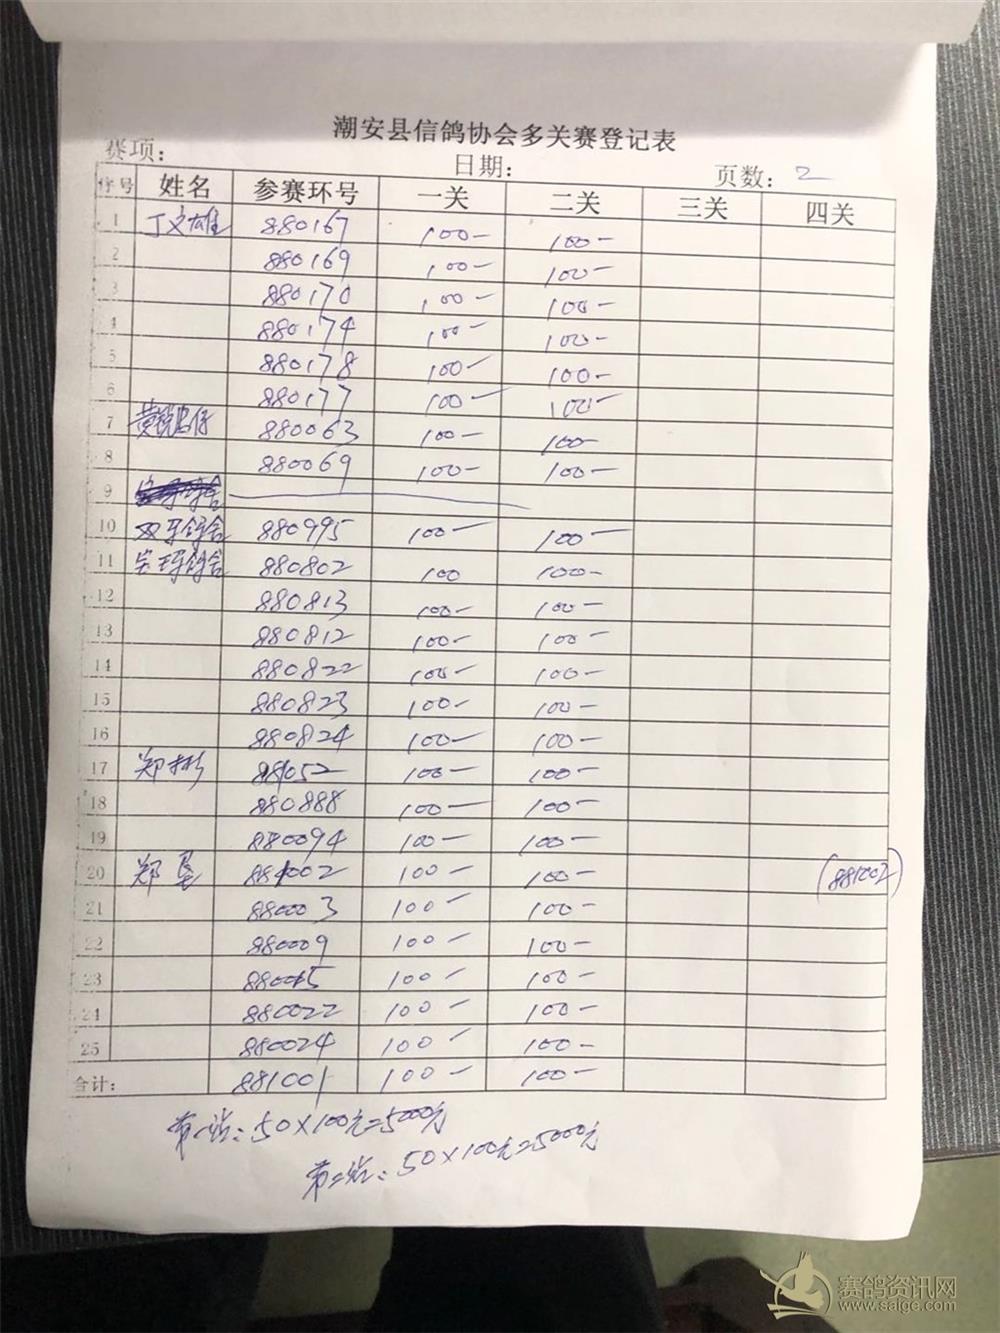 潮安县信鸽协会多关赛登记表
赛项: 日期: 页数: 2
序号 姓名 参赛环号 一关 二关 三关 四关
1 丁文雄 880167 100- 100-
2 880169 100- 100-
3 880170 100- 100-
4 880174 100- 100-
5 880178 100- 100-
6 880177 100- 100-
7 880063 100- 100-
8 880069 100- 100-
9
10 双牙鸽舍 880995 100- 100-
11 鸽舍 880802 100 100-
12 880813 100- 100-
13 880812 100- 100-
14 880822 100- 100-
15 880823 100- 100-
16 880824 100- 100-
17 郑彬 881052 100- 100-
18 880888 100- 100-
19 880094 100- 100-
20 郑 881002 100- 100- (881002)
21 880003 100- 100-
22 880009 100- 100-
23 880015 100- 100-
24 880022 100- 100-
25 880024 100- 100-
合计: 881001 100- 100-
第一站: 50×100元=5000元
第二站: 50×100元=5000元
赛鸽资讯网
www.saige.com